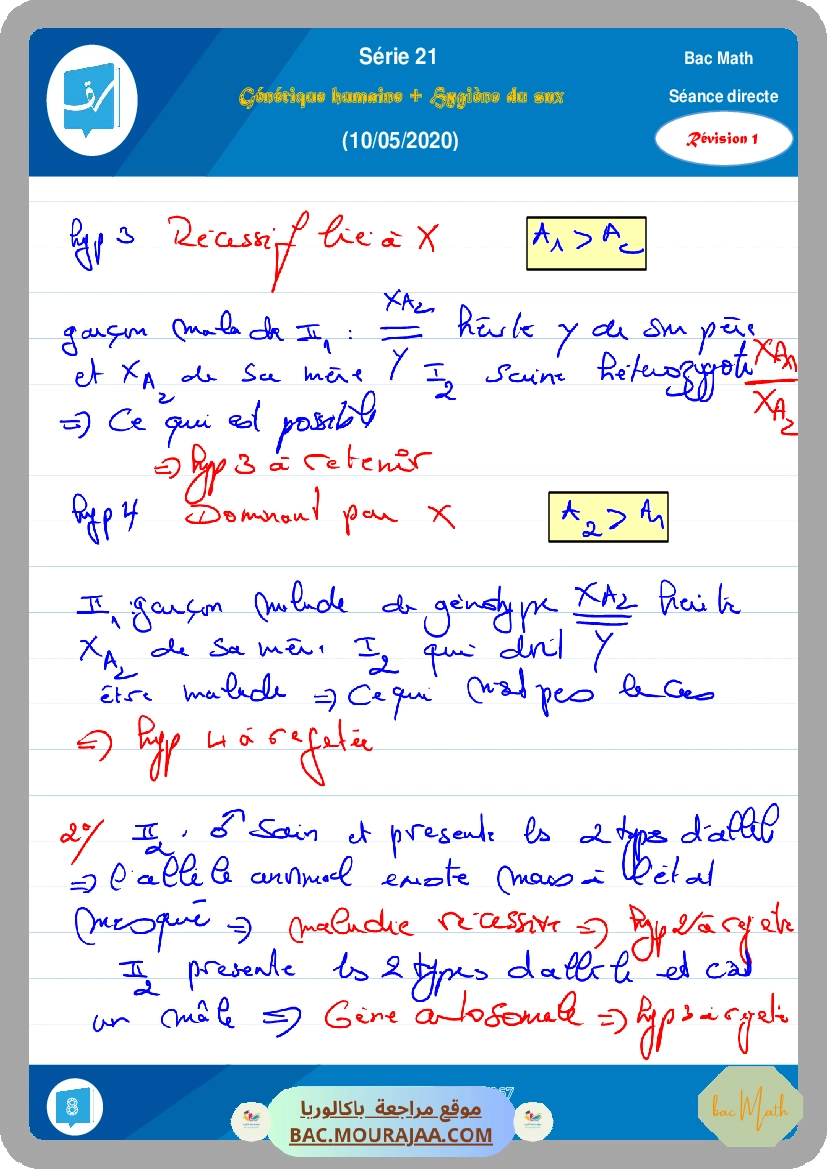 Série 21
Bac Math
Génétique humaine + Hygiène du sux
Séance directe
(10/05/2020)
Révision 1
hyp 3 Récessif lié à X
A1 > A2
garçon malade II1 : XA2/Y hérite Y de son père
et XA2 de sa mère I2 saine hétérozygote XA1/XA2
=> Ce qui est possible
=> hyp 3 à retenir
hyp 4 Dominant par X
A2 > A1
II1 garçon malade de génotype XA2/Y hérite
XA2 de sa mère I2 qui doit
être malade => Ce qui n'est pas le cas
=> hyp 4 à rejetée
2°/ II2 ♂ Sain et présente les 2 types d'allèle
=> l'allèle anormal existe mais à l'état
masqué => maladie récessive => hyp 2 à rejeté
II2 présente les 2 types d'allèle et c'est
un mâle => Gène autosomale => hyp 3 à rejeté
8
موقع مراجعة باكالوريا
BAC.MOURAJAA.COM
bac Math